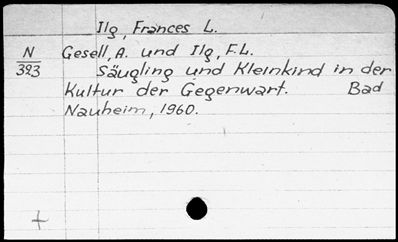 Ilg, Frances L.
N Gesell, A. und Ilg, F.L.
323 Säugling und Kleinkind in der
Kultur der Gegenwart. Bad
Nauheim, 1960.
+